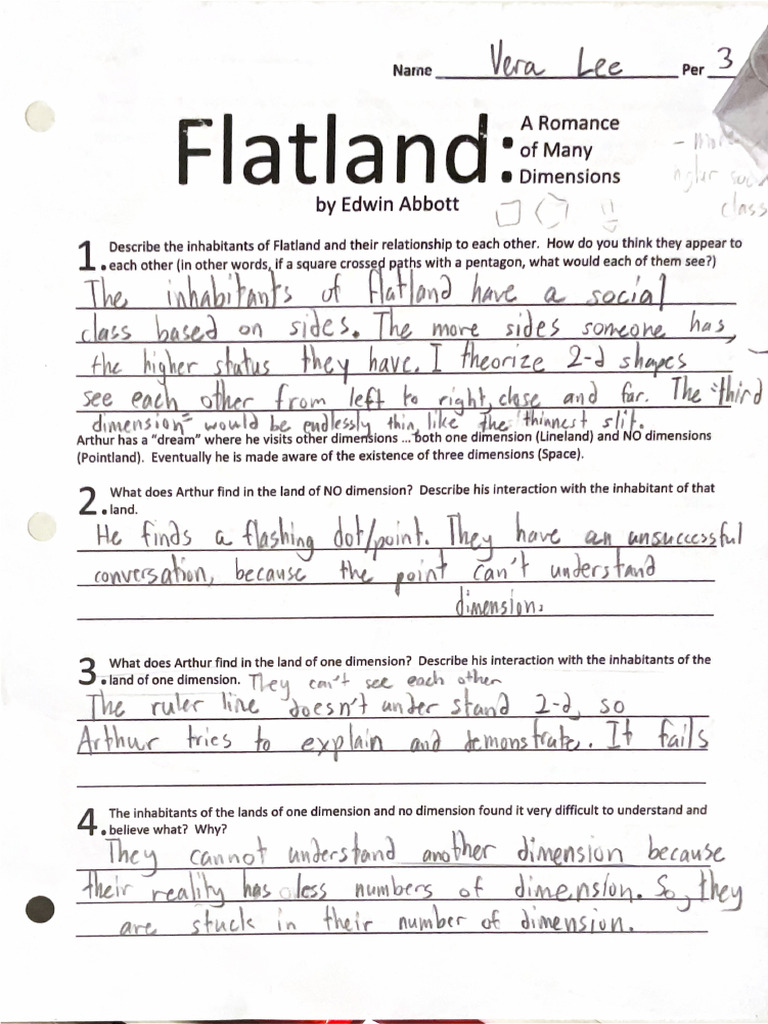 Name Vera Lee Per 3
Flatland:
A Romance
of Many
Dimensions
by Edwin Abbott
class
1. Describe the inhabitants of Flatland and their relationship to each other. How do you think they appear to
each other (in other words, if a square crossed paths with a pentagon, what would each of them see?)
The inhabitants of flatland have a social
class based on sides. The more sides someone has,
the higher status they have. I theorize 2-d shapes
see each other from left to right, close and far. The "third
dimension" would be endlessly thin, like the thinnest slit.
Arthur has a "dream" where he visits other dimensions ... both one dimension (Lineland) and NO dimensions
(Pointland). Eventually he is made aware of the existence of three dimensions (Space).
2. What does Arthur find in the land of NO dimension? Describe his interaction with the inhabitant of that
land.
He finds a flashing dot/point. They have an unsuccessful
conversation, because the point can't understand
dimension.
3. What does Arthur find in the land of one dimension? Describe his interaction with the inhabitants of the
land of one dimension. They can't see each other
The ruler line doesn't under stand 2-d, so
Arthur tries to explain and demonstrate. It fails
4. The inhabitants of the lands of one dimension and no dimension found it very difficult to understand and
believe what? Why?
They cannot understand another dimension because
their reality has less numbers of dimension. So, they
are stuck in their number of dimension.